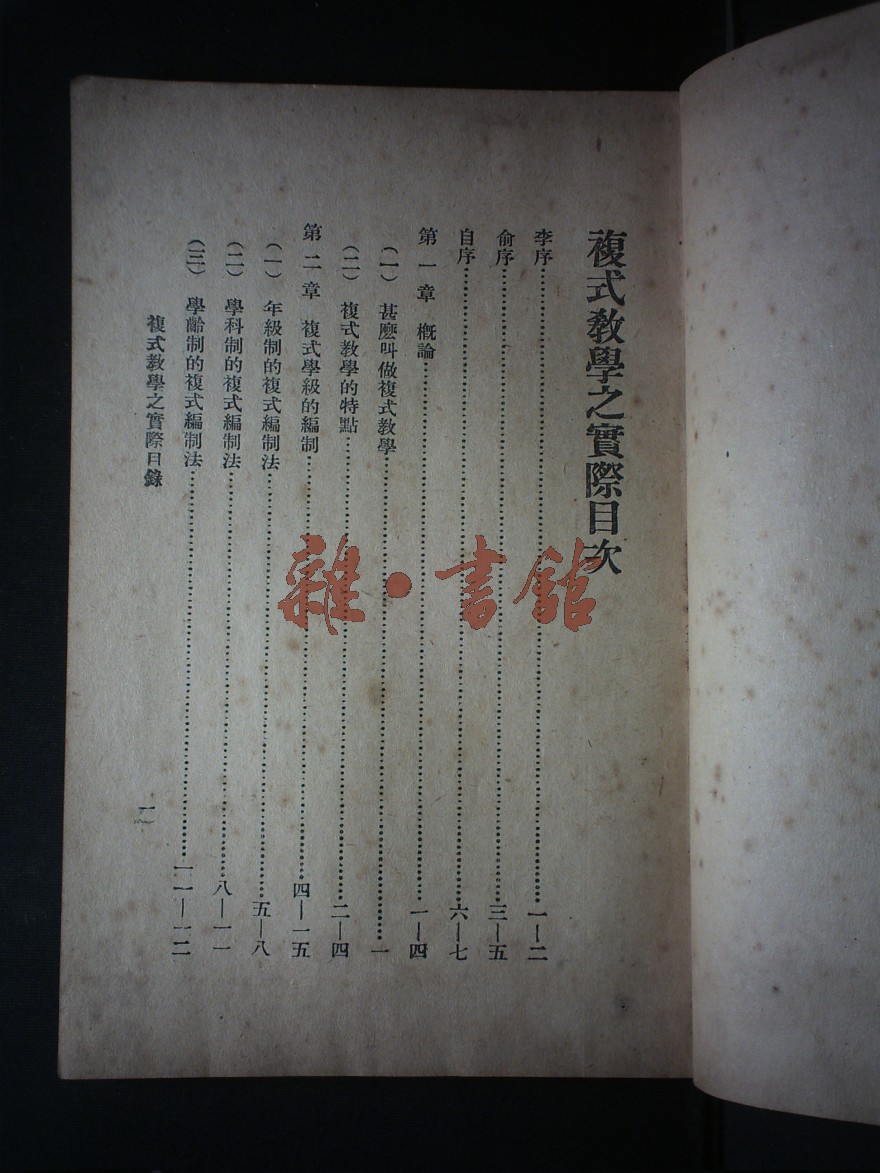 複式教學之實際目次
李序……一—二
俞序……三—五
自序……六—七
第一章　概論……一—四
（一）甚麽叫做複式教學……一
（二）複式教學的特點……二—四
第二章　複式學級的編制……四—一五
（一）年級制的複式編制法……五—八
（二）學科制的複式編制法……八—一一
（三）學齡制的複式編制法……一一—一二
複式教學之實際目錄
一
雜・書館